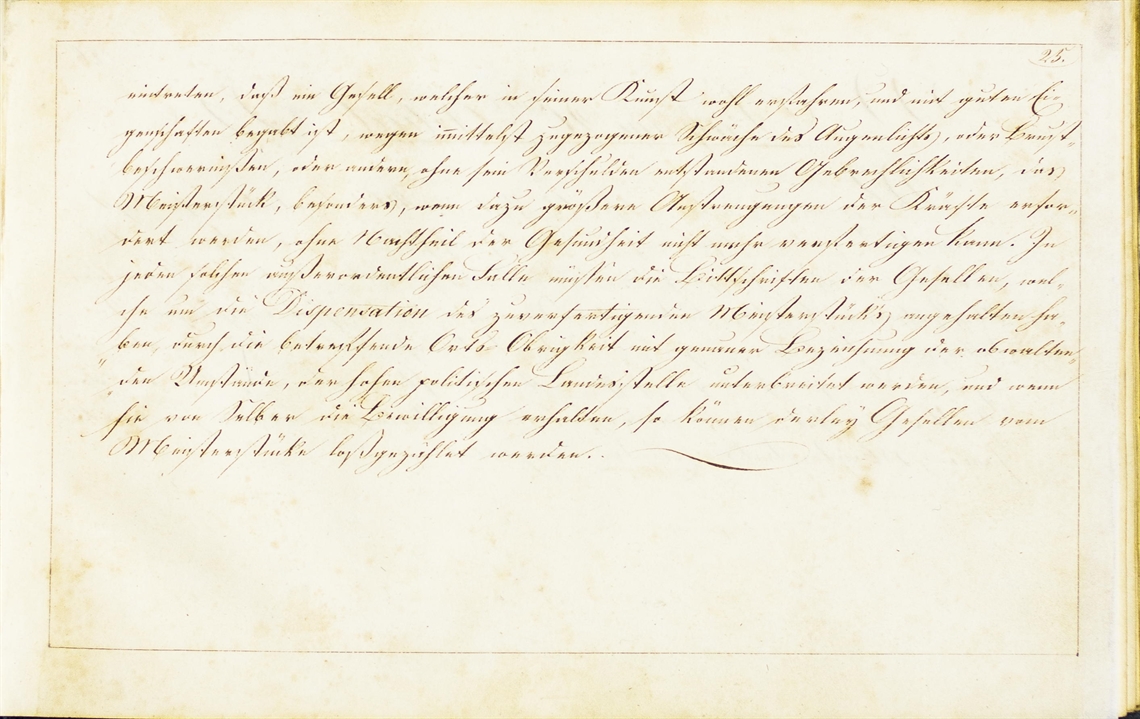 25.
eintreten, daß ein Gesell, welcher in seiner Kunst wohl erfahren, und mit guten Ei-
genschaften begabt ist, wegen mittelst zugezogener Schwäche des Augenlichts, oder Brust-
beschwernißen, oder andern, ohne sein Verschulden entstandenen Gebrechlichkeiten, das
Meisterstück, besonders, wenn dazu größere Anstrengungen der Kräfte erfor-
dert werden, ohne Nachtheil der Gesundheit nicht mehr verfertigen kann. In
jeden solchen außerordentlichen Falle müßen die Bittschriften der Gesellen, wel-
che um die Dispensation des zuverfertigenden Meisterstücks angehalten ha-
ben, durch die betreffende Orts-Obrigkeit mit genauer Beziehung der obwalten-
den Umstände, der hohen politischen Landesstelle unterbreitet werden, und wenn
sie von Selber die Bewilligung erhalten, so können derley Gesellen vom
Meisterstücke loßgezählet werden.